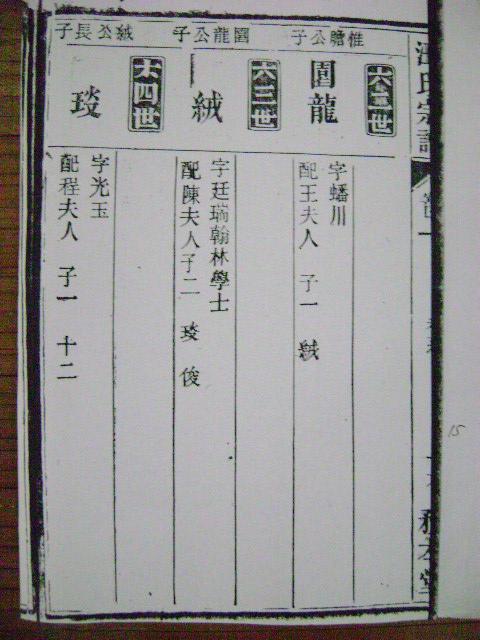 氏宗譜
卷一
惟瞻公子
六二世
園龍
字蟠川
配王夫人 子一 絨
園龍公子
六三世
絨
字廷瑞翰林學士
配陳夫人子二 琰 俊
絨公長子
六四世
琰
字光玉
配程夫人 子一 十二
15